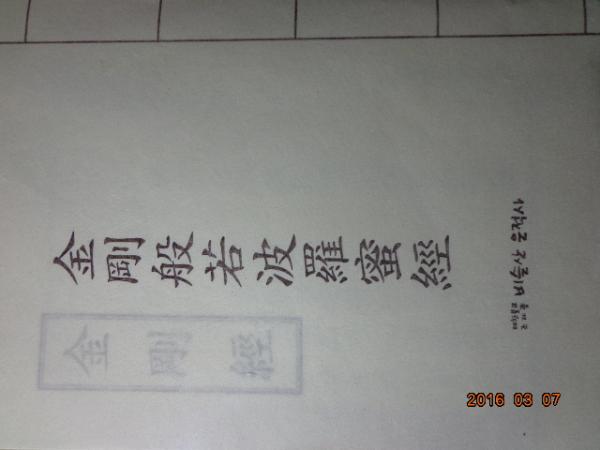 金剛般若波羅蜜經
金剛經
2016 03 07